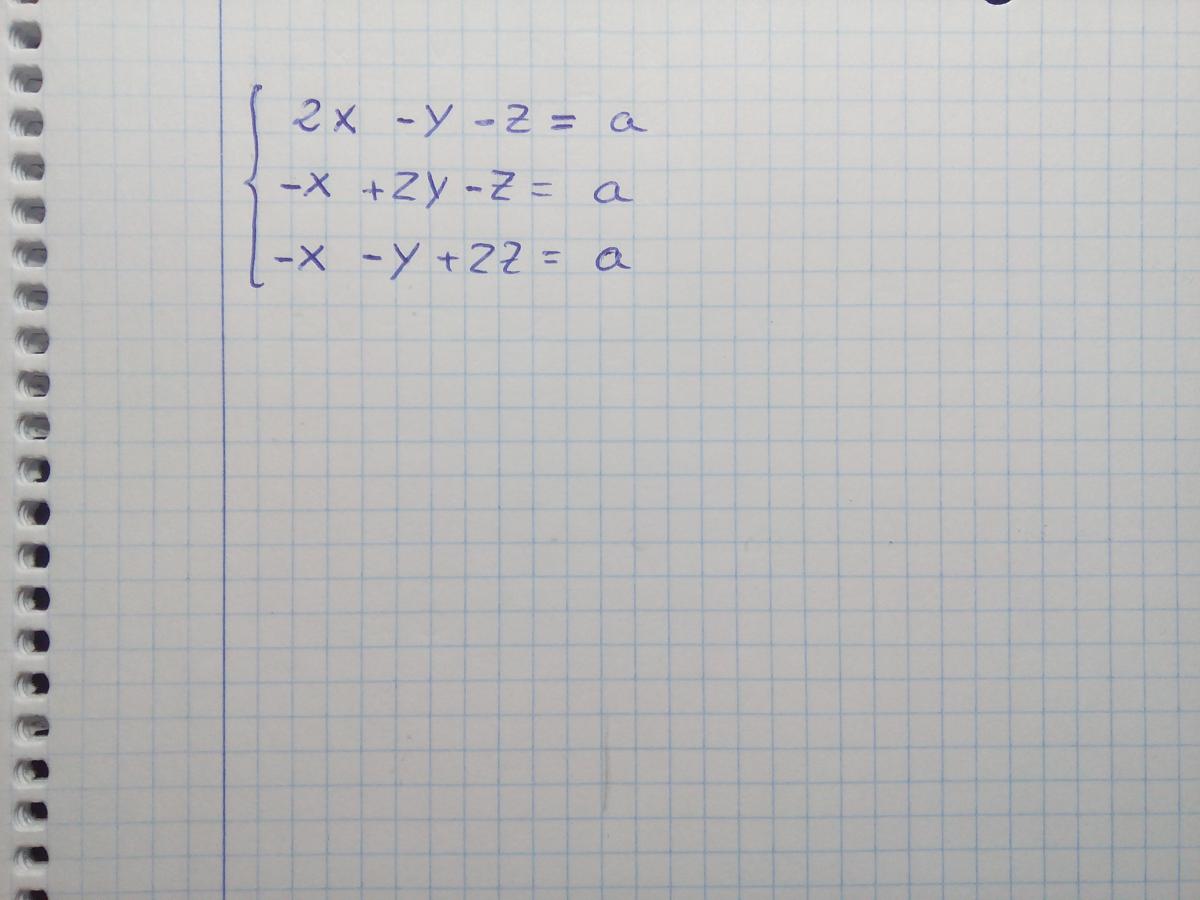 2x - y - z = a
-x + 2y - z = a
-x - y + 2z = a